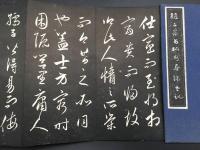 趙文敏書相州晝錦堂記
仕宦而至將相
富貴而歸故
鄉此人情之所榮
而今昔之所同
也蓋士方窮時
困阨閭里庸人
孺子皆得易而侮